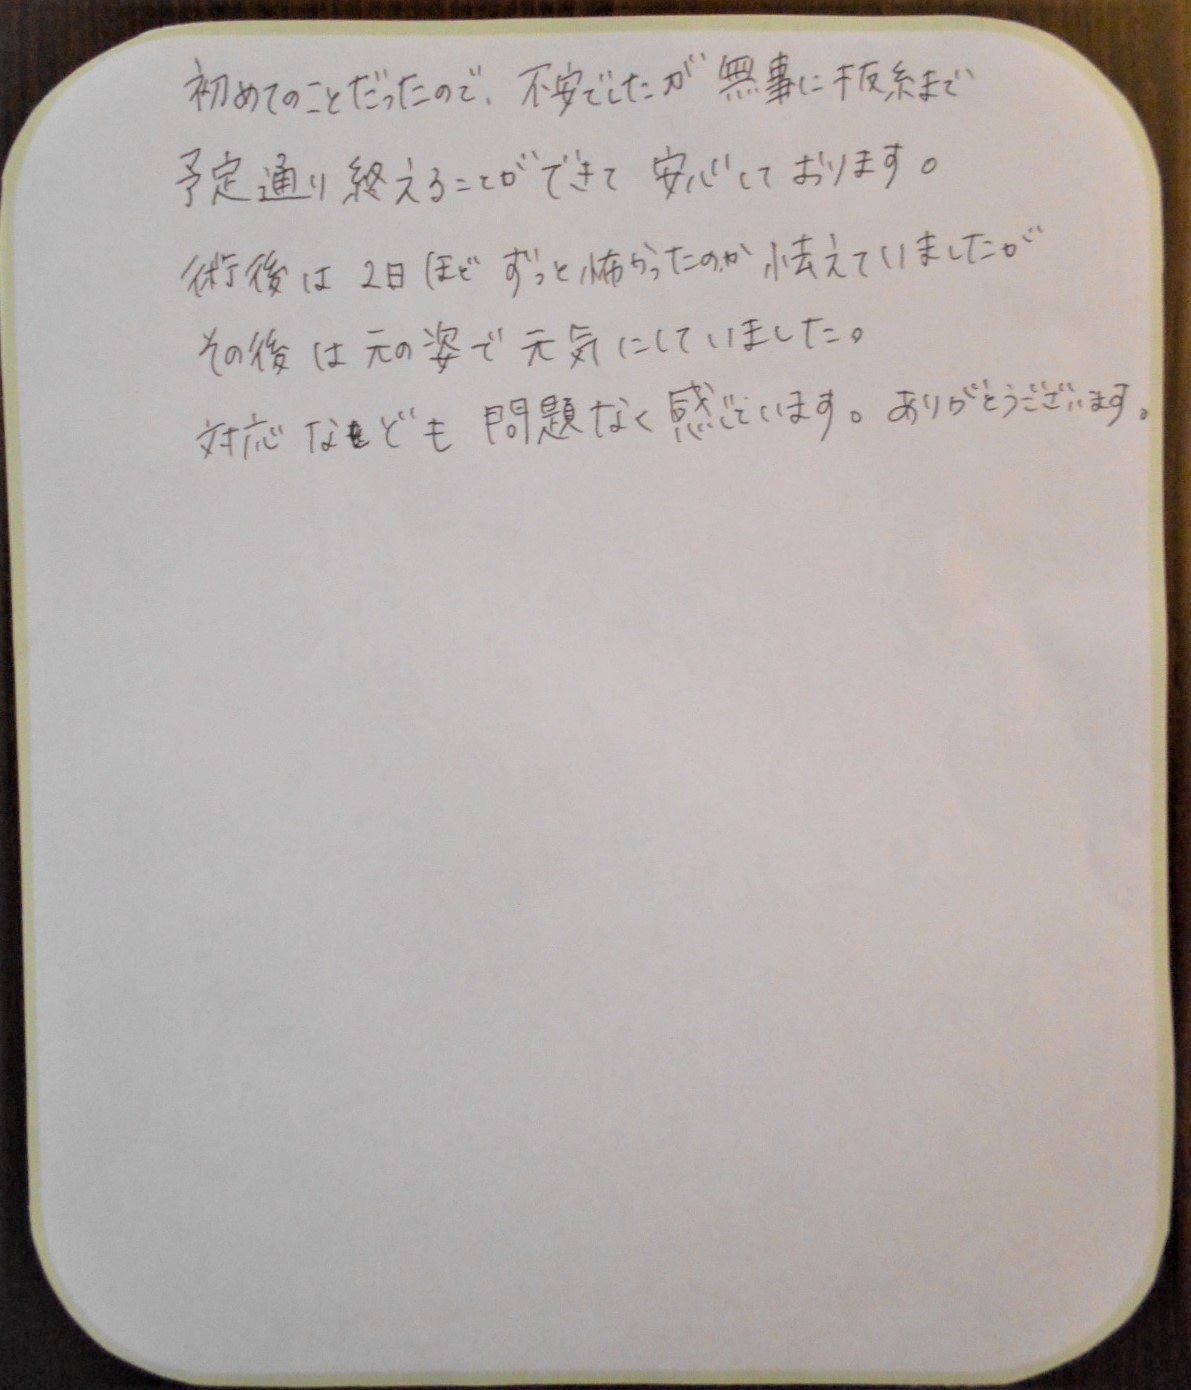 初めてのことだったので、不安でしたが無事に抜糸まで
予定通り終えることができて安心しております。
術後は2日ほどずっと怖かったのか怯えていましたが
その後は元の姿で元気にしていました。
対応なども問題なく感じています。ありがとうございます。